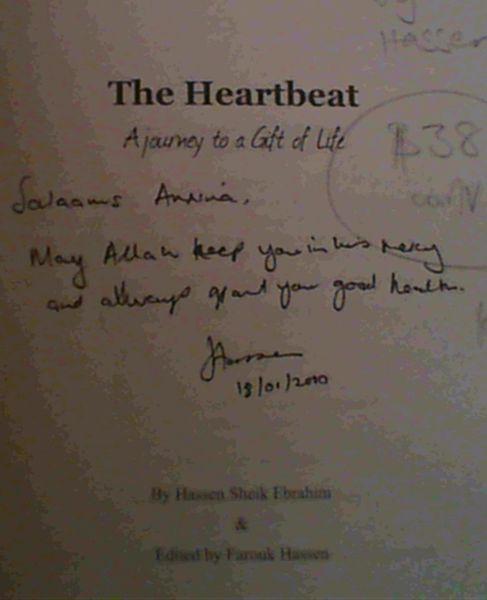 Hassen
The Heartbeat
A journey to a Gift of Life
$38
Salaams Amina,
May Allah keep you in his mercy
and always grant you good health.
Hassen
18/01/2010
By Hassen Sheik Ebrahim
&
Edited by Farouk Hassen